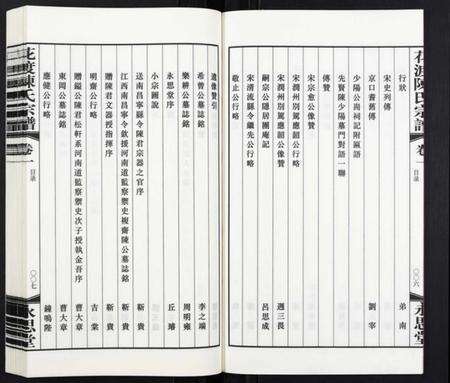 花渡陳氏宗譜
卷一
目录
〇〇六
永思堂
行狀 弟南
宋史列傳
京口耆舊傳 劉宰
少陽公崗祠記附匾語
先賢陳少陽墓門對語一聯
傳贊
宋宗愈公像贊
宋潤州別駕應韶公像贊 週三畏
宋潤州別駕應韶公行略
嗣宗公隱居團庵記 呂思成
宋清流縣令繼先公行略
敬止公行略
遺像贊引
希曾公墓誌銘 李之端
樂耕公墓誌銘 周明雍
永思堂序 丘璿
小宗圖說
送南昌寧縣令陳君宗器之官序 靳貴
江西南昌寧縣令敕援河南道監察禦史複齋陳公墓誌銘 靳貴
贈陳君文器授指揮序 靳貴
明齋公行略 古棠
贈鎰公陳君松軒系河南道監察禦史次子授執金吾序 曹大章
東岡公墓誌銘 曹大章
應健公行略 鐘鳴陛
花渡陳氏宗譜
卷一
目录
〇〇七
永思堂